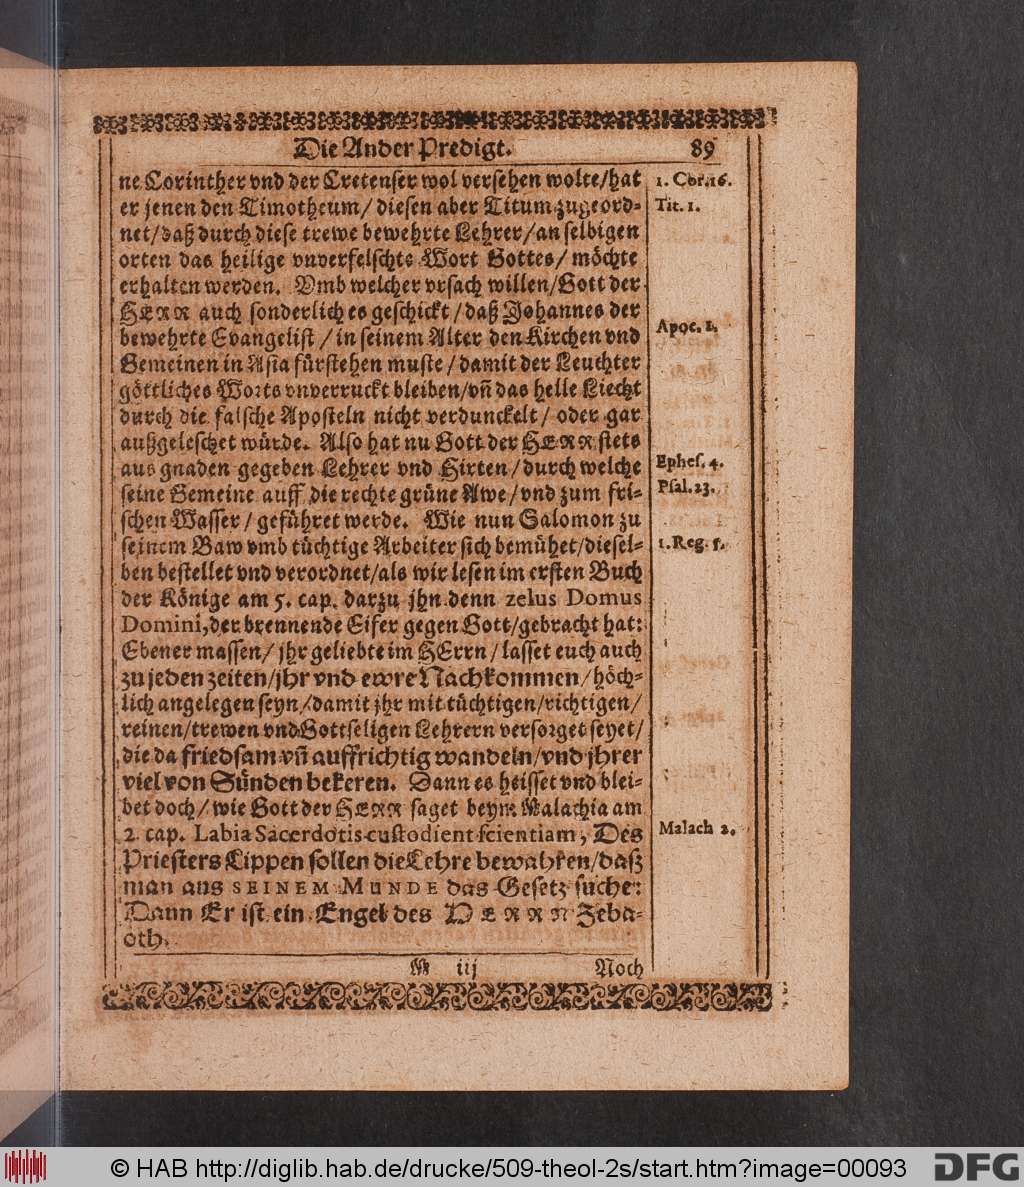 Die Ander Predigt. 89
ne Corinther vnd der Cretenser wol versehen wolte/hat
er jenen den Timotheum/ diesen aber Titum zugeord-
net/daß durch diese trewe bewehrte Lehrer/an selbigen
orten das heilige vnverfelschte Wort Gottes/ möchte
erhalten werden. Vmb welcher vrsach willen/Gott der
HERR auch sonderlich es geschickt/daß Johannes der
bewehrte Evangelist/ in seinem Alter den Kirchen vnd
Gemeinen in Asia fürstehen muste/damit der Leuchter
göttliches Worts vnverruckt bleiben/vñ das helle Liecht
durch die falsche Aposteln nicht verdunckelt/ oder gar
außgeleschet würde. Also hat nu Gott der HERR stets
aus gnaden gegeben Lehrer vnd Hirten/durch welche
seine Gemeine auff die rechte grüne Awe/vnd zum fri-
schen Wasser/ geführet werde. Wie nun Salomon zu
seinem Baw vmb tüchtige Arbeiter sich bemühet/diesel-
ben bestellet vnd verordnet/als wir lesen im ersten Buch
der Könige am 5. cap. darzu jhn denn zelus Domus
Domini, der brennende Eifer gegen Gott/gebracht hat:
Ebener massen/ jhr geliebte im HErrn/lasset euch auch
zu jeden zeiten/jhr vnd ewre Nachkommen/höch-
lich angelegen seyn/damit jhr mit tüchtigen/richtigen/
reinen/trewen vnd Gottseligen Lehrern versorget seyet/
die da friedsam vñ auffrichtig wandeln/vnd jhrer
viel von Sünden bekeren. Dann es heisset vnd blei-
bet doch/ wie Gott der HERR saget beym Malachia am
2. cap. Labia Sacerdotis custodient scientiam, Des
Priesters Lippen sollen die Lehre bewahren/daß
man aus SEINEM MUNDE das Gesetz suche:
Dann Er ist ein Engel des HERRN Zeba-
oth.
M iij Noch
1. Cor. 16.
Tit. 1.
Apoc. 1.
Ephes. 4.
Psal. 23.
1. Reg. 5.
Malach 2.
© HAB http://diglib.hab.de/drucke/509-theol-2s/start.htm?image=00093
DFG